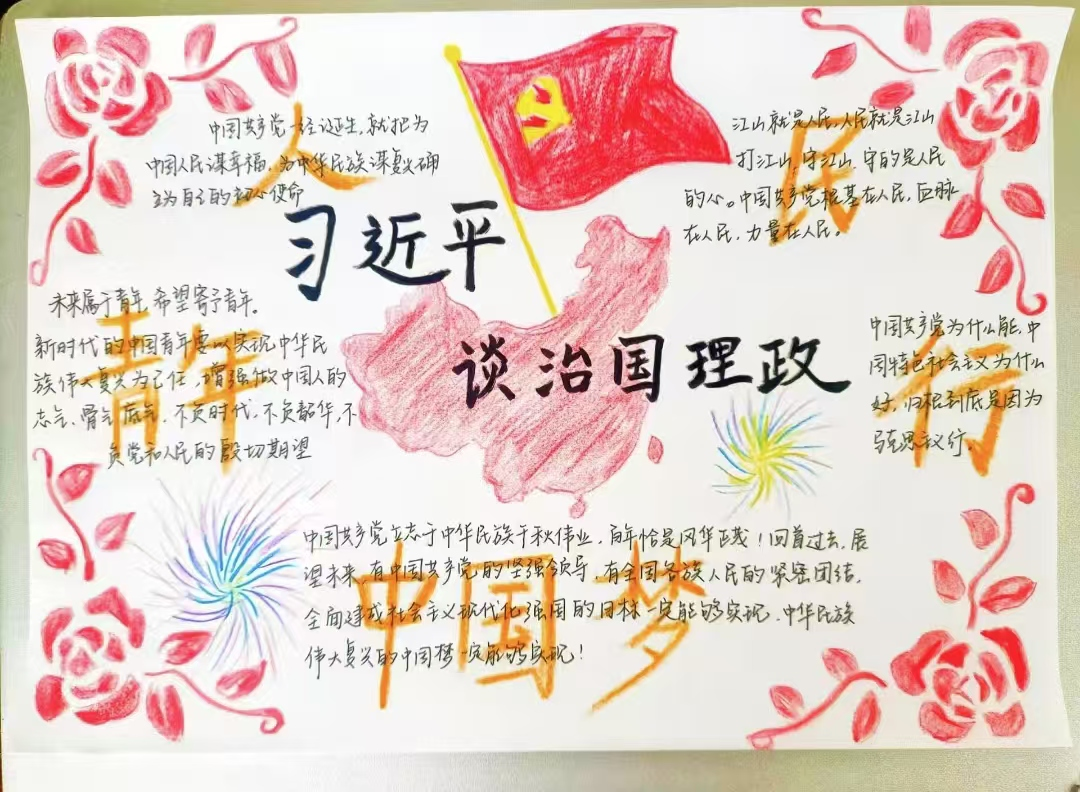 中国共产党一经诞生，就把为
中国人民谋幸福、为中华民族谋复兴确
立为自己的初心使命
人
江山就是人民，人民就是江山
打江山，守江山，守的是人民
的心。中国共产党根基在人民，血脉
在人民，力量在人民。
民
习近平
谈治国理政
未来属于青年，希望寄予青年。
新时代的中国青年要以实现中华民
族伟大复兴为己任，增强做中国人的
志气、骨气、底气，不负时代，不负韶华，不
负党和人民的殷切期望
青年
中国共产党为什么能，中
国特色社会主义为什么
好，归根到底是因为
马克思主义行。
行
中国共产党立志于中华民族千秋伟业，百年恰是风华正茂！回首过去，展
望未来，有中国共产党的坚强领导，有全国各族人民的紧密团结，
全面建成社会主义现代化强国的目标一定能够实现，中华民族
伟大复兴的中国梦一定能够实现！
中国梦